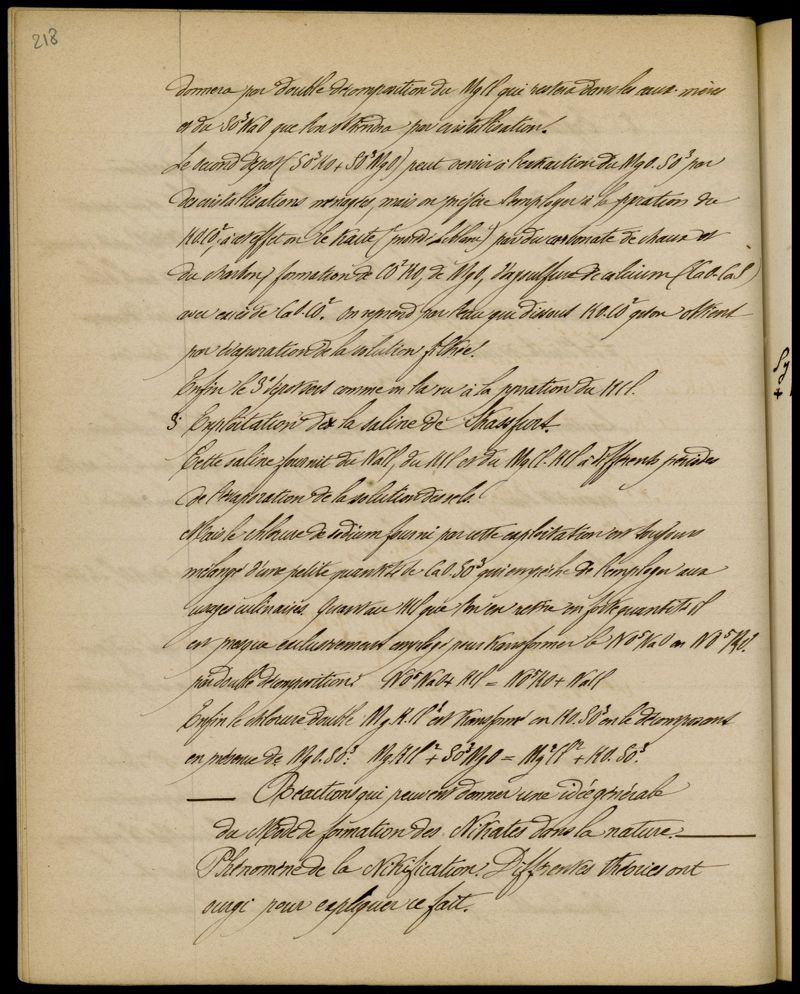 218
donnera par double décomposition du MgCl qui restera dans les eaux-mères
et du SO³NaO que l'on obtiendra par cristallisation.
Le second dépôt (SO³KO + SO³MgO) peut servir à l'extraction du MgO.SO³ par
des cristallisations ménagées, mais on préfère l'employer à la préparation du
KO.CO², à cet effet on le traite (procédé Leblanc) par du carbonate de chaux et
du charbon, formation de CO²KO, de MgO, d'oxysulfure de calcium (CaO.CaS)
avec excès de CaO.CO². On reprend par l'eau qui dissout KO.CO² qu'on obtient
par évaporation de la solution filtrée.
Enfin le 3e dépôt sert comme on l'a vu à la préparation du KCl.
3: Exploitation de la saline de Stassfurt.
Cette saline fournit du NaCl, du KCl et du MgCl.KCl à différentes périodes
de l'évaporation de la solution des sels.
Mais le chlorure de sodium fourni par cette exploitation est toujours
mélangé d'une petite quantité de CaO.SO³ qui empêche de l'employer aux
usages culinaires. Quant au KCl que l'on en retire en forte quantité il
est presque exclusivement employé pour transformer le NO⁵NaO en NO⁵KO.
par double décomposition: NO⁵NaO + KCl = NO⁵KO + NaCl
Enfin le chlorure double Mg.K.Cl² est transformé en KO.SO³ en le décomposant
en présence de MgO.SO³: Mg.KCl² + SO³MgO = Mg²Cl² + KO.SO³.
— Réactions qui peuvent donner une idée générale
du Mode de formation des Nitrates dans la nature. —
Phénomène de la Nitrification. Différentes théories ont
surgi pour expliquer ce fait.